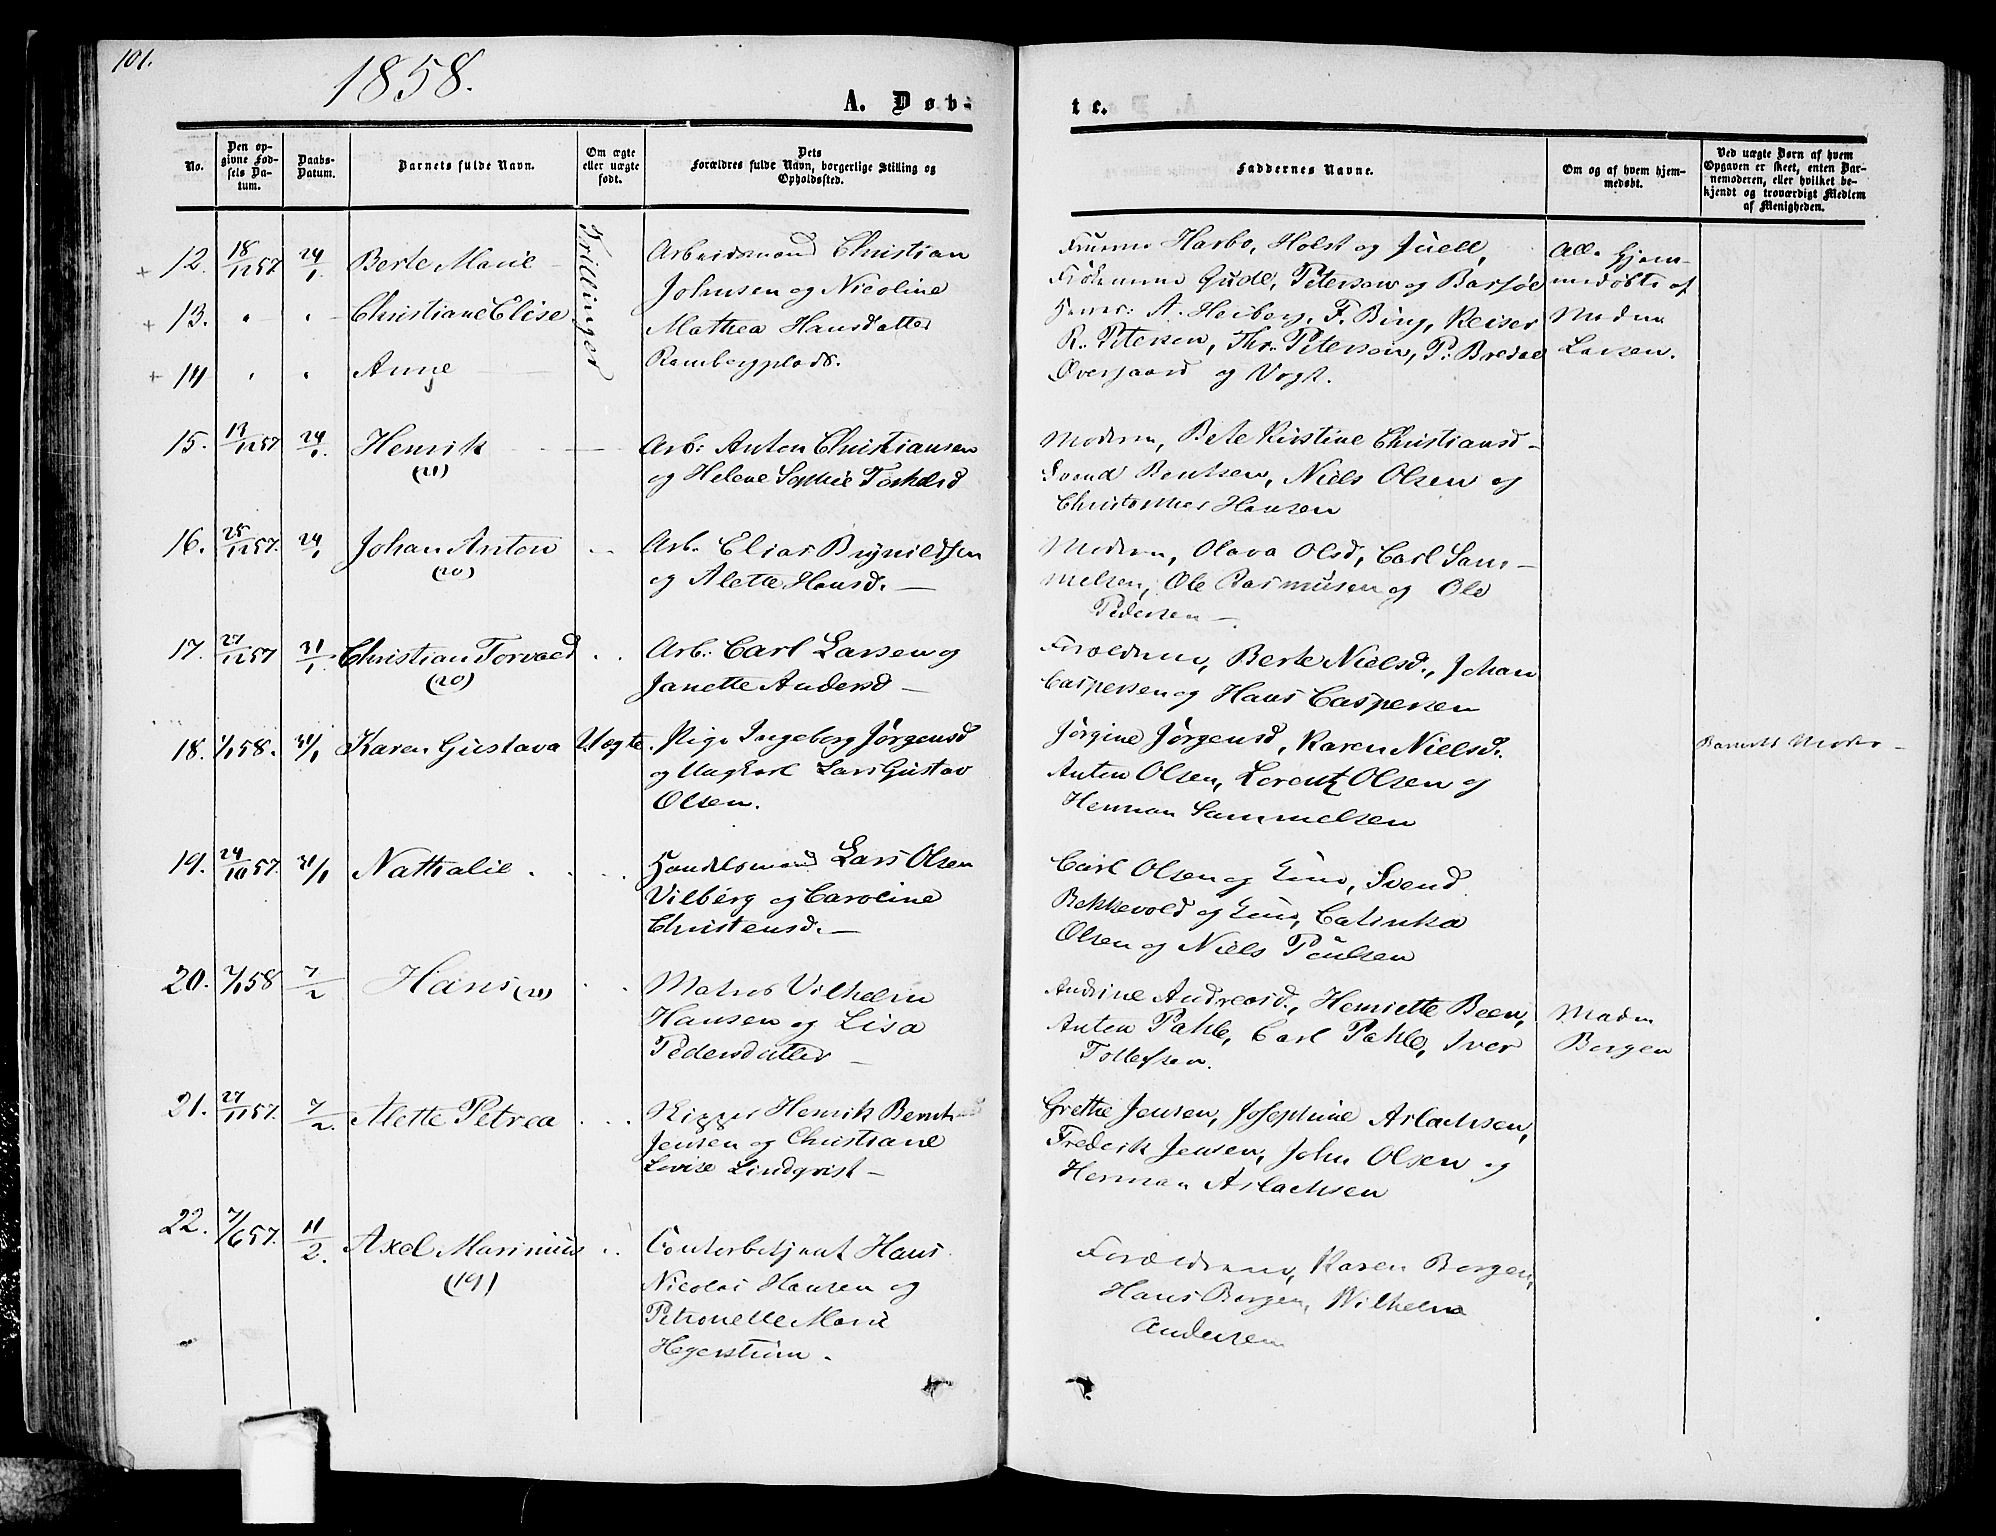 101.
1858.
A. Døb-
te.
No.
Den op-
givne Fød-
sels Da-
tum.
Daabs-
Datum.
Barnets fulde Navn.
Om ægte
eller uægte
født.
Dets
Forældres fulde Navn, borgerlige Stilling og
Opholdssted.
Faddernes Navne.
Om og af hvem hjem-
medøbt.
Ved uægte Børn af hvem
Opgaven er skeet, enten Bar-
nemoderen, eller hvilket be-
kjendt og troværdigt Medlem
af Menigheden.
+ 12. 18/12 57 24/1 Berte Marie
Trillinger
Arbeidsmand Christian
Johnsen og Nicoline
Mathea Hansdatter
Rambergplads.
Fruerne Harbo, Holst og Juell,
Frøknerne Gude, Petersen og Barsøe
Herrer: A. Heiberg, F. Bing, Reiser
R. Petersen, Thr. Petersen, P. Bredal
Overgaard og Vogt.
Alle hjem-
medøbte af
Madm
Larsen.
+ 13. " " Christiane Elise
+ 14 " " Anne
15. 57 24/1 Henrik
(21)
Arb: Anton Christiansen
og Helene Sophie Torkelsd
Moderen, Bete Kirstine Christiansd-
Svend Bentsen, Niels Olsen og
Christopher Hansen
16. 25/12 57. 24/1 Johan Anton
(20)
Arb. Elias Brynildsen
og Alette Hansd.
Moderen, Olava Olsd, Carl Sam-
melsen, Ole Rasmusen og Ole
Pedersen
17. 27/12 57 31/1 Christian Torvald
(20)
Arb: Carl Larsen og
Janette Andersd
Forældrene, Berte Nielsd., Johan
Caspersen og Hans Caspersen
18. 58. 31/1 Karen Gustava Uægte.
Pige Ingeborg Jørgensd
og Ungkarl Lars Gustav
Olsen.
Jørgine Jørgensd, Karen Nielsd.
Anton Olsen, Lorentz Olsen og
Herman Sammelsen
Barnets Moder
19. 24/10 57. 31/1 Nathalie
Handelsmand Lars Olsen
Vilberg og Caroline
Christensd.
Carl Olsen og , Svend
Bekkevold og , Catinka
Olsen og Niels Poulsen
20. 58 7/2 Hans (21)
Matros Vilhelm
Hansen og Lisa
Pedersdatter
Andrine Andreasd., Henriette Been,
Anton Pahle, Carl Pahle, Iver
Tollefsen.
Madm
Borgen
21. 27/11 57. 7/2. Alette Petrea
Rigger Henrik
Jensen og Christiane
Lovise Lindqvist
Grethe Jensen, Josephine Aslachsen,
Frederik Jensen, John Olsen og
Herman Aslachsen
22. 7/6 57. 11/2. Axel Marinius
(19)
Contorbetjent Hans
Nicolai Hansen og
Petronelle Marie
Hegerstrøm.
Forældrene, Karen Borgen,
Hans Borgen, Wilhelm
Andersen